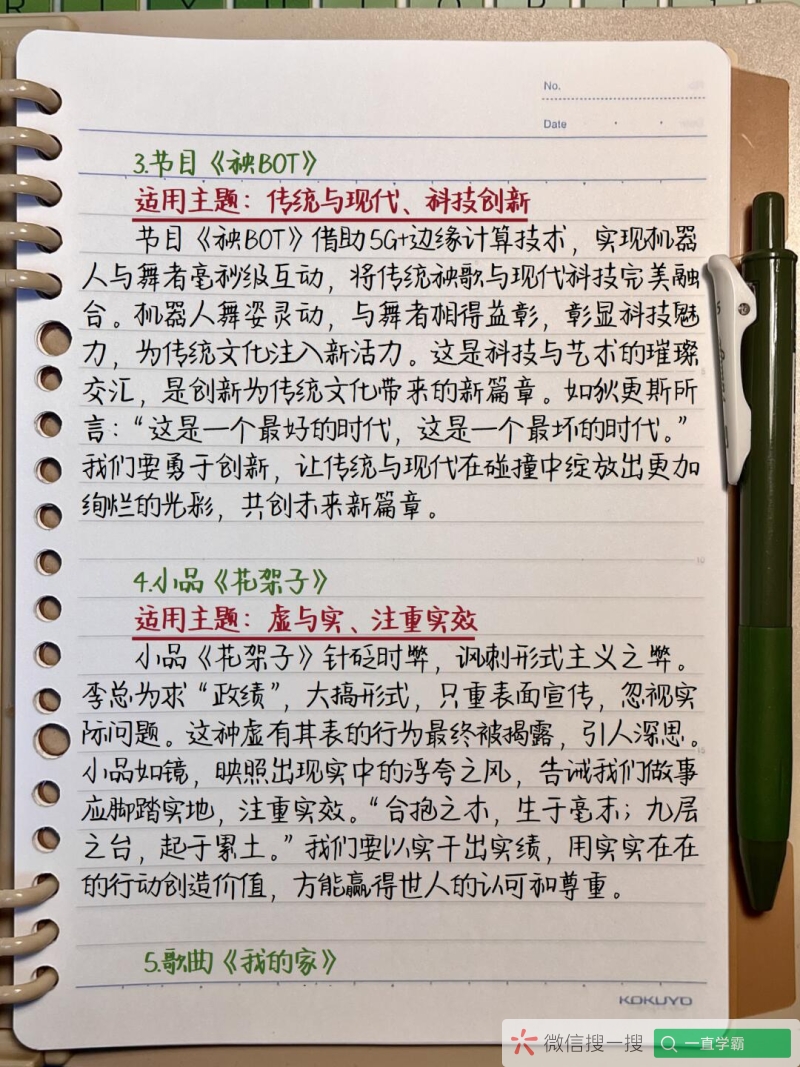 No.
Date
3.节目《秧BOT》
适用主题：传统与现代、科技创新
节目《秧BOT》借助5G+边缘计算技术，实现机器
人与舞者毫秒级互动，将传统秧歌与现代科技完美融
合。机器人舞姿灵动，与舞者相得益彰，彰显科技魅
力，为传统文化注入新活力。这是科技与艺术的璀璨
交汇，是创新为传统文化带来的新篇章。如狄更斯所
言：“这是一个最好的时代，这是一个最坏的时代。”
我们要勇于创新，让传统与现代在碰撞中绽放出更加
绚烂的光彩，共创未来新篇章。
4.小品《花架子》
适用主题：虚与实、注重实效
小品《花架子》针砭时弊，讽刺形式主义之弊。
李总为求“政绩”，大搞形式，只重表面宣传，忽视实
际问题。这种虚有其表的行为最终被揭露，引人深思。
小品如镜，映照出现实中的浮夸之风，告诫我们做事
应脚踏实地，注重实效。“合抱之木，生于毫末；九层
之台，起于累土。”我们要以实干出实绩，用实实在在
的行动创造价值，方能赢得世人的认可和尊重。
5.歌曲《我的家》
KOKUYO
微信搜一搜
一直学霸